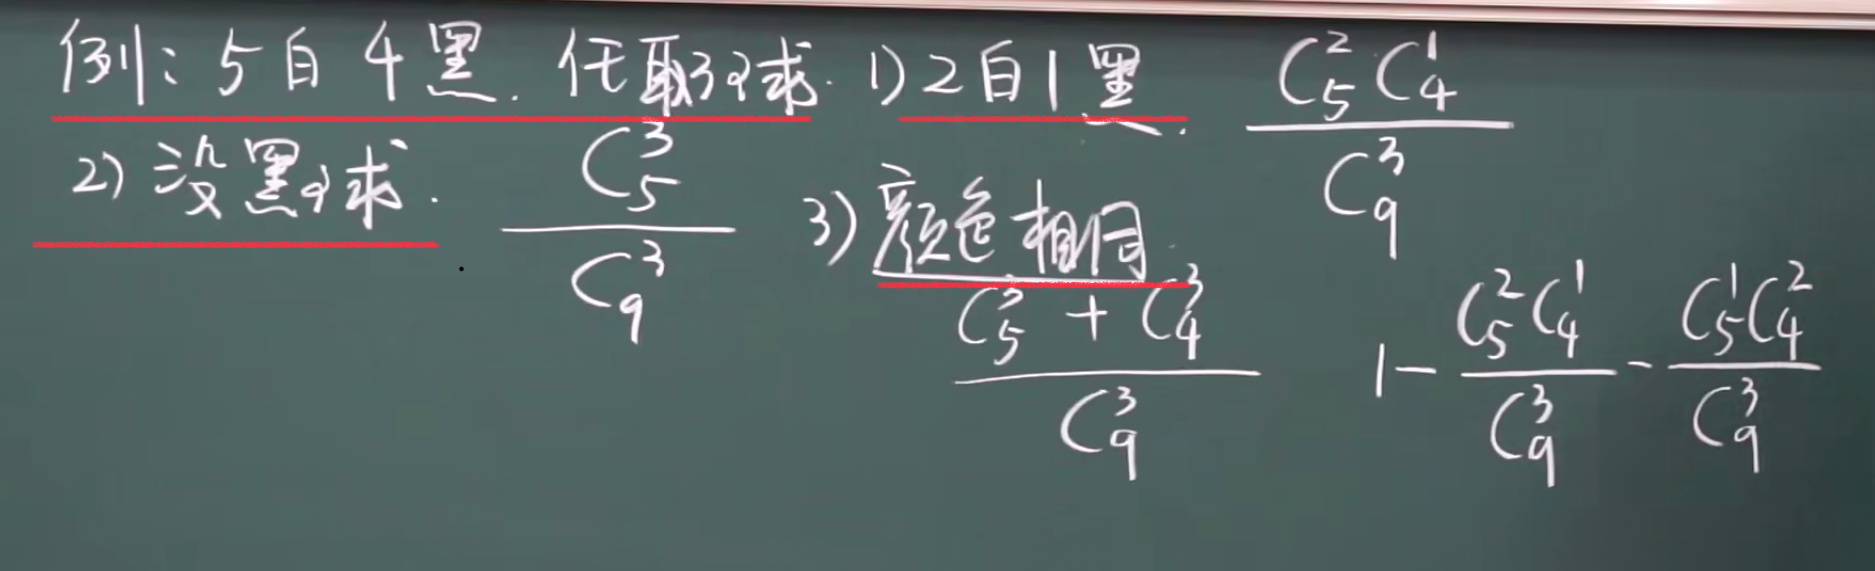 例: 5白 4黑. 任取3球. 1) 2白1黑. C_5^2 C_4^1 / C_9^3
2) 没黑球. C_5^3 / C_9^3
3) 颜色相同. C_5^3 + C_4^3 / C_9^3
1 - C_5^2 C_4^1 / C_9^3 - C_5^1 C_4^2 / C_9^3